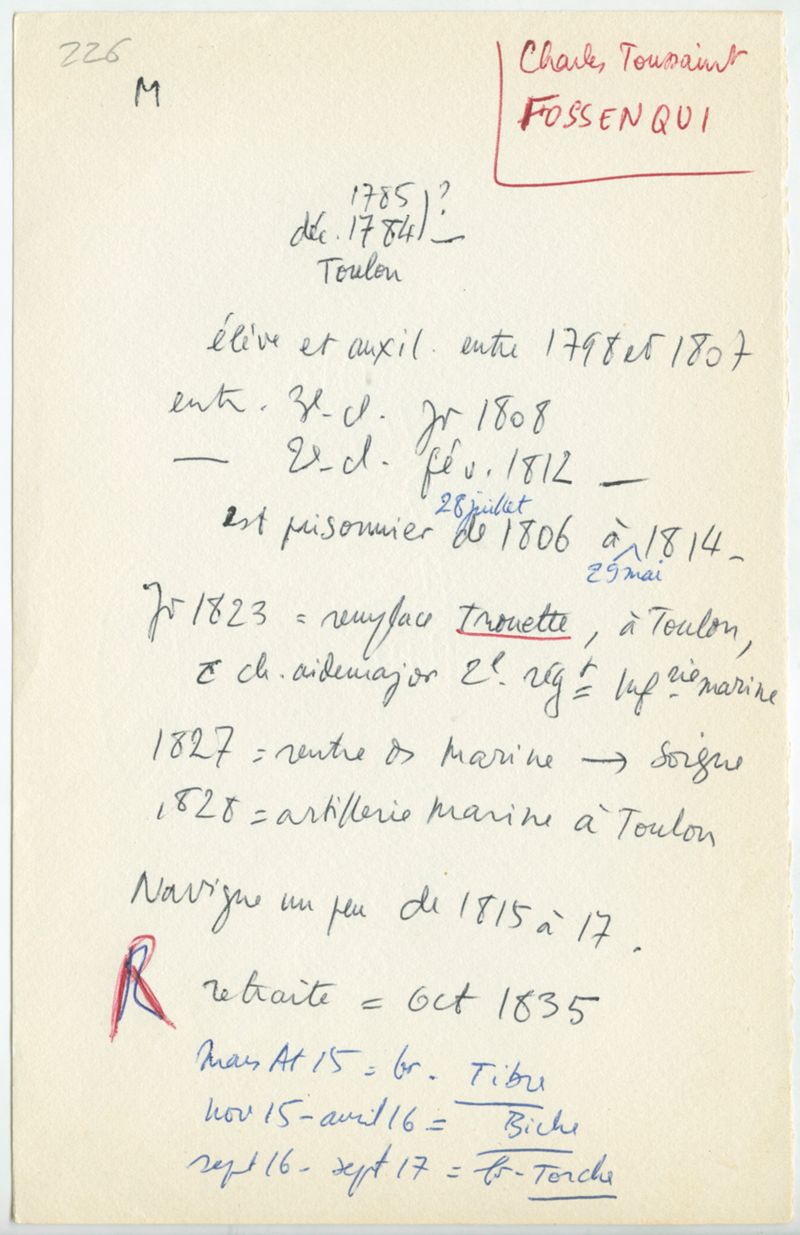 226
M
Charles Toussaint
FOSSENQUI
1785 ) ?
déc. 1784 ) —
Toulon
élève et auxil. entre 1798 et 1807
entr. 3e cl. Jr 1808
— 2e cl. fév. 1812 —
28 juillet
est prisonnier de 1806 à 1814 -
29 mai
Jr 1823 = remplace Trouette, à Toulon,
ch. aidemajor 2e régt Infrie marine
1827 = rentre ds marine → soigne
1828 = artillerie marine à Toulon
Navigue un peu de 1815 à 17.
R retraite = Oct 1835
mars At 15 = br. Tibre
nov 15 - avril 16 = Biche
sept 16 - sept 17 = br - Torche